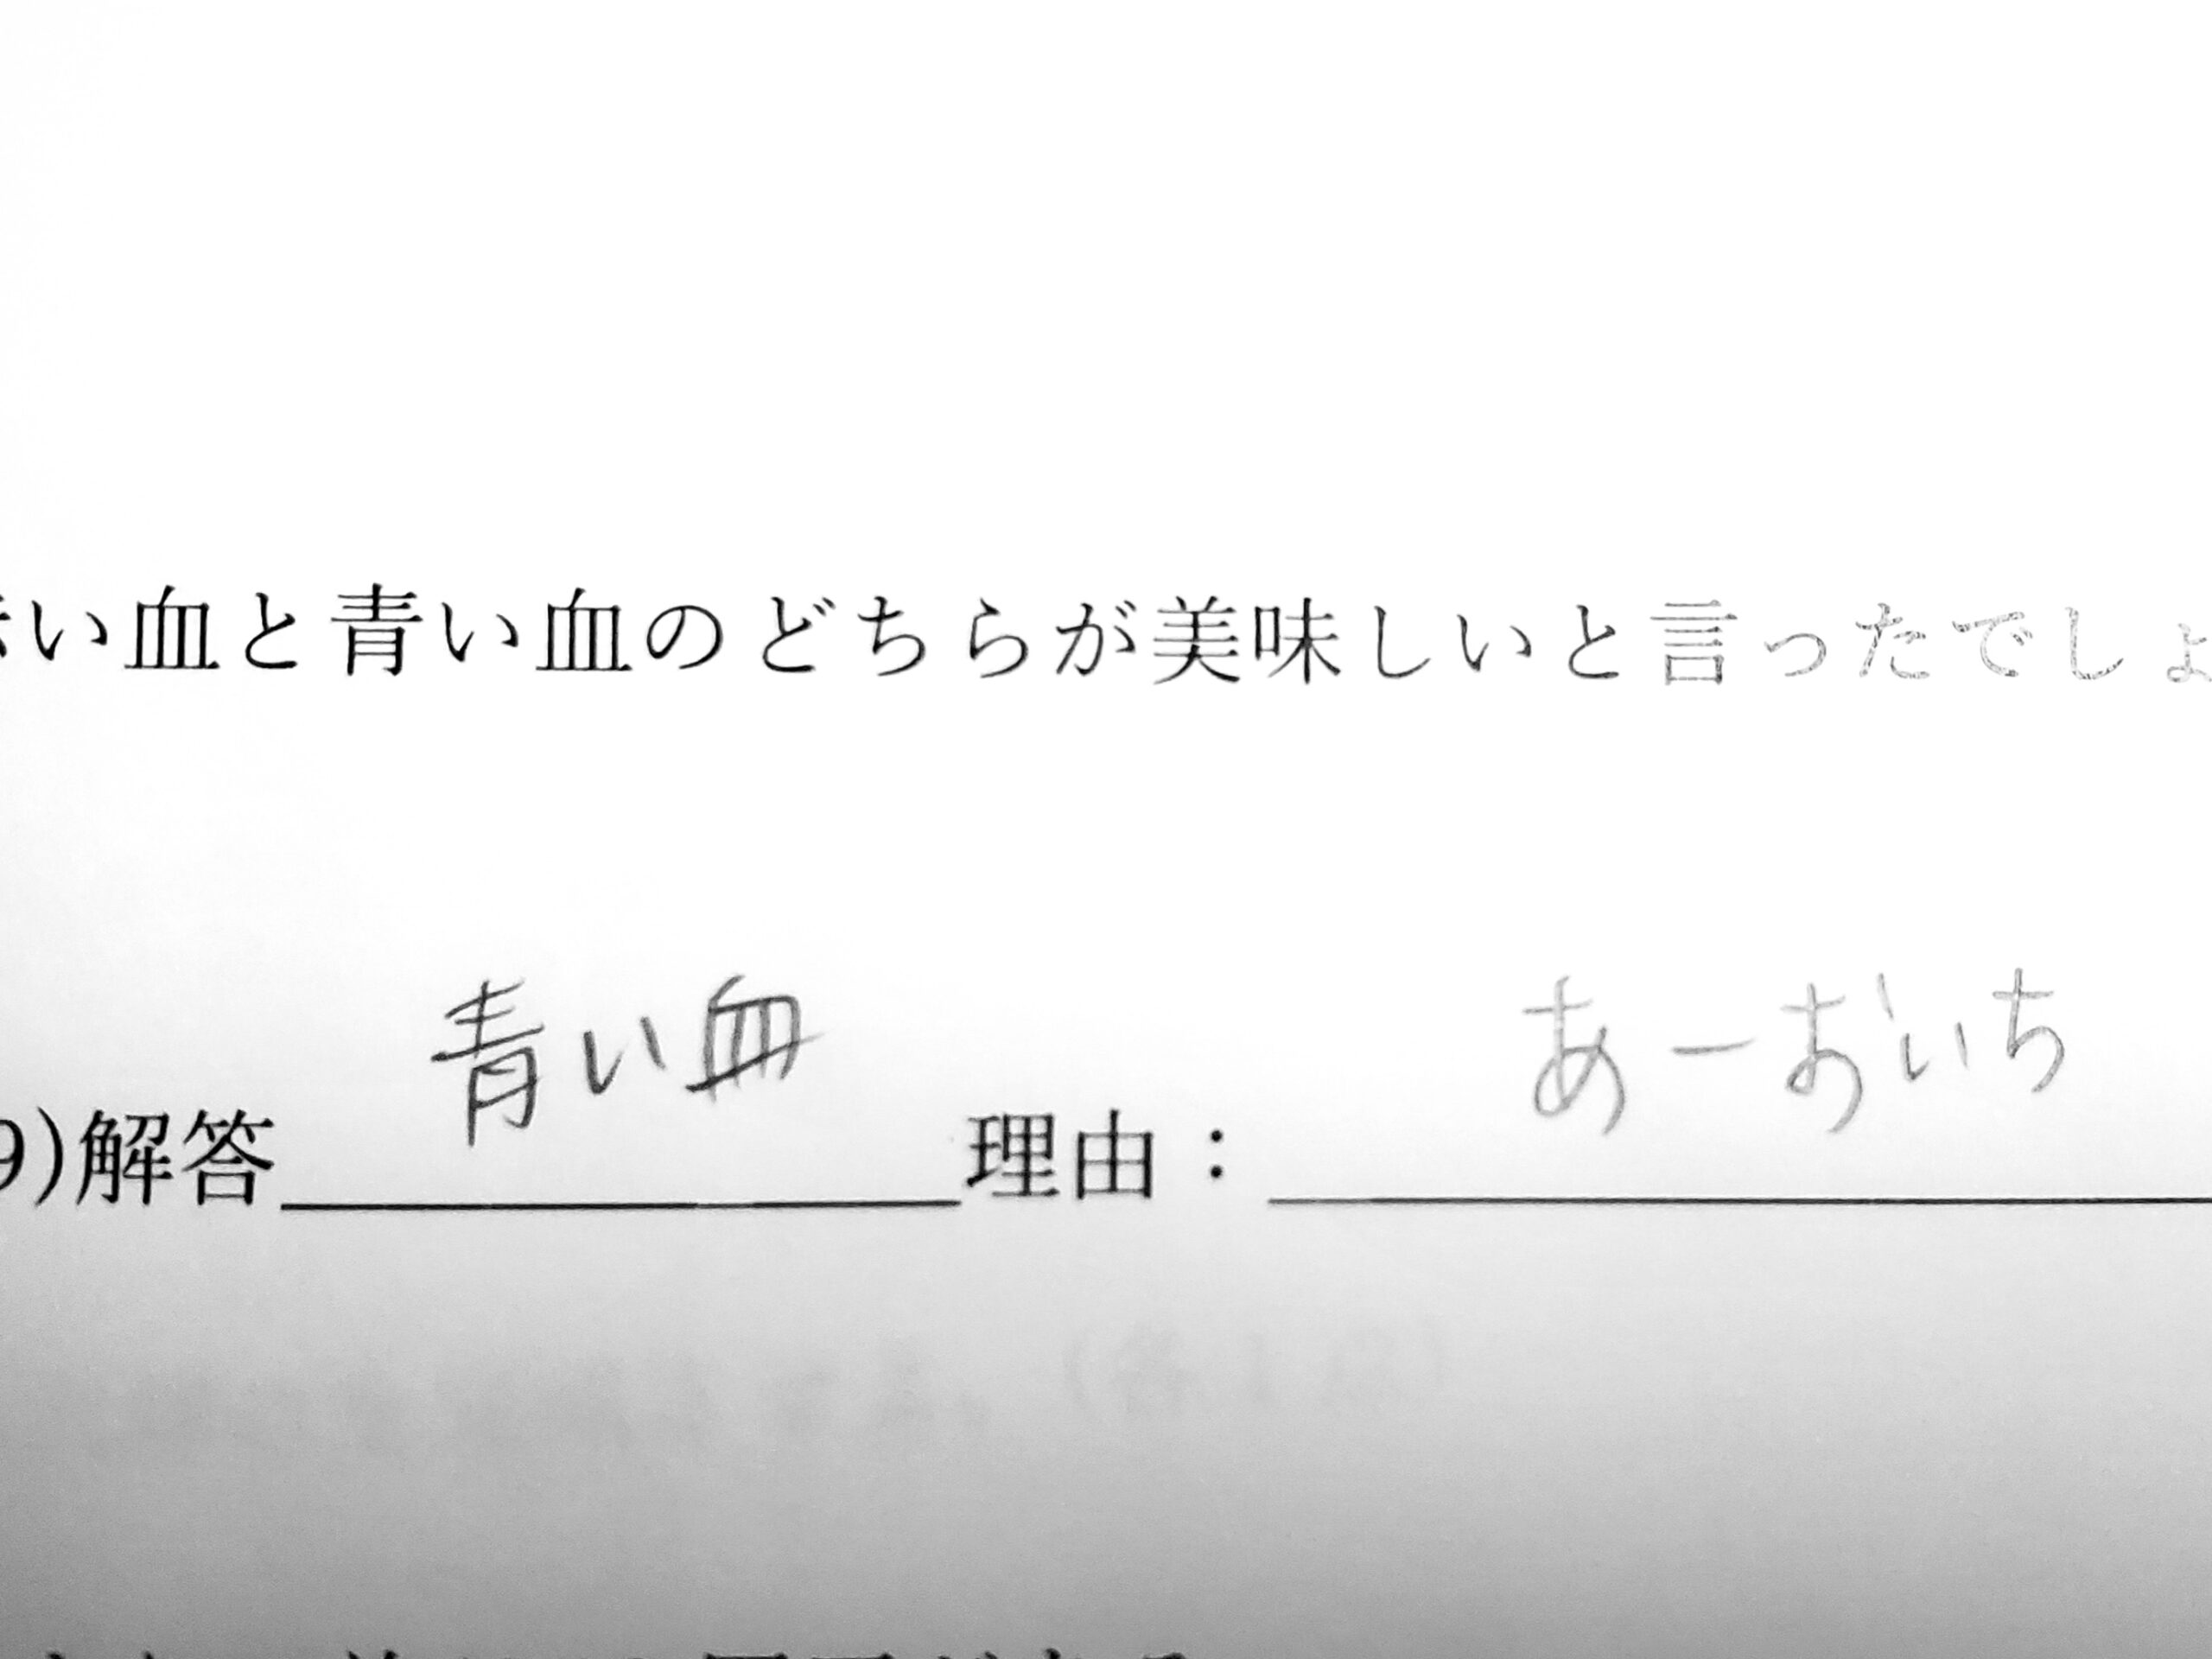 い血と青い血のどちらが美味しいと言ったでしょ
9)解答 青い血 理由： あーおいち